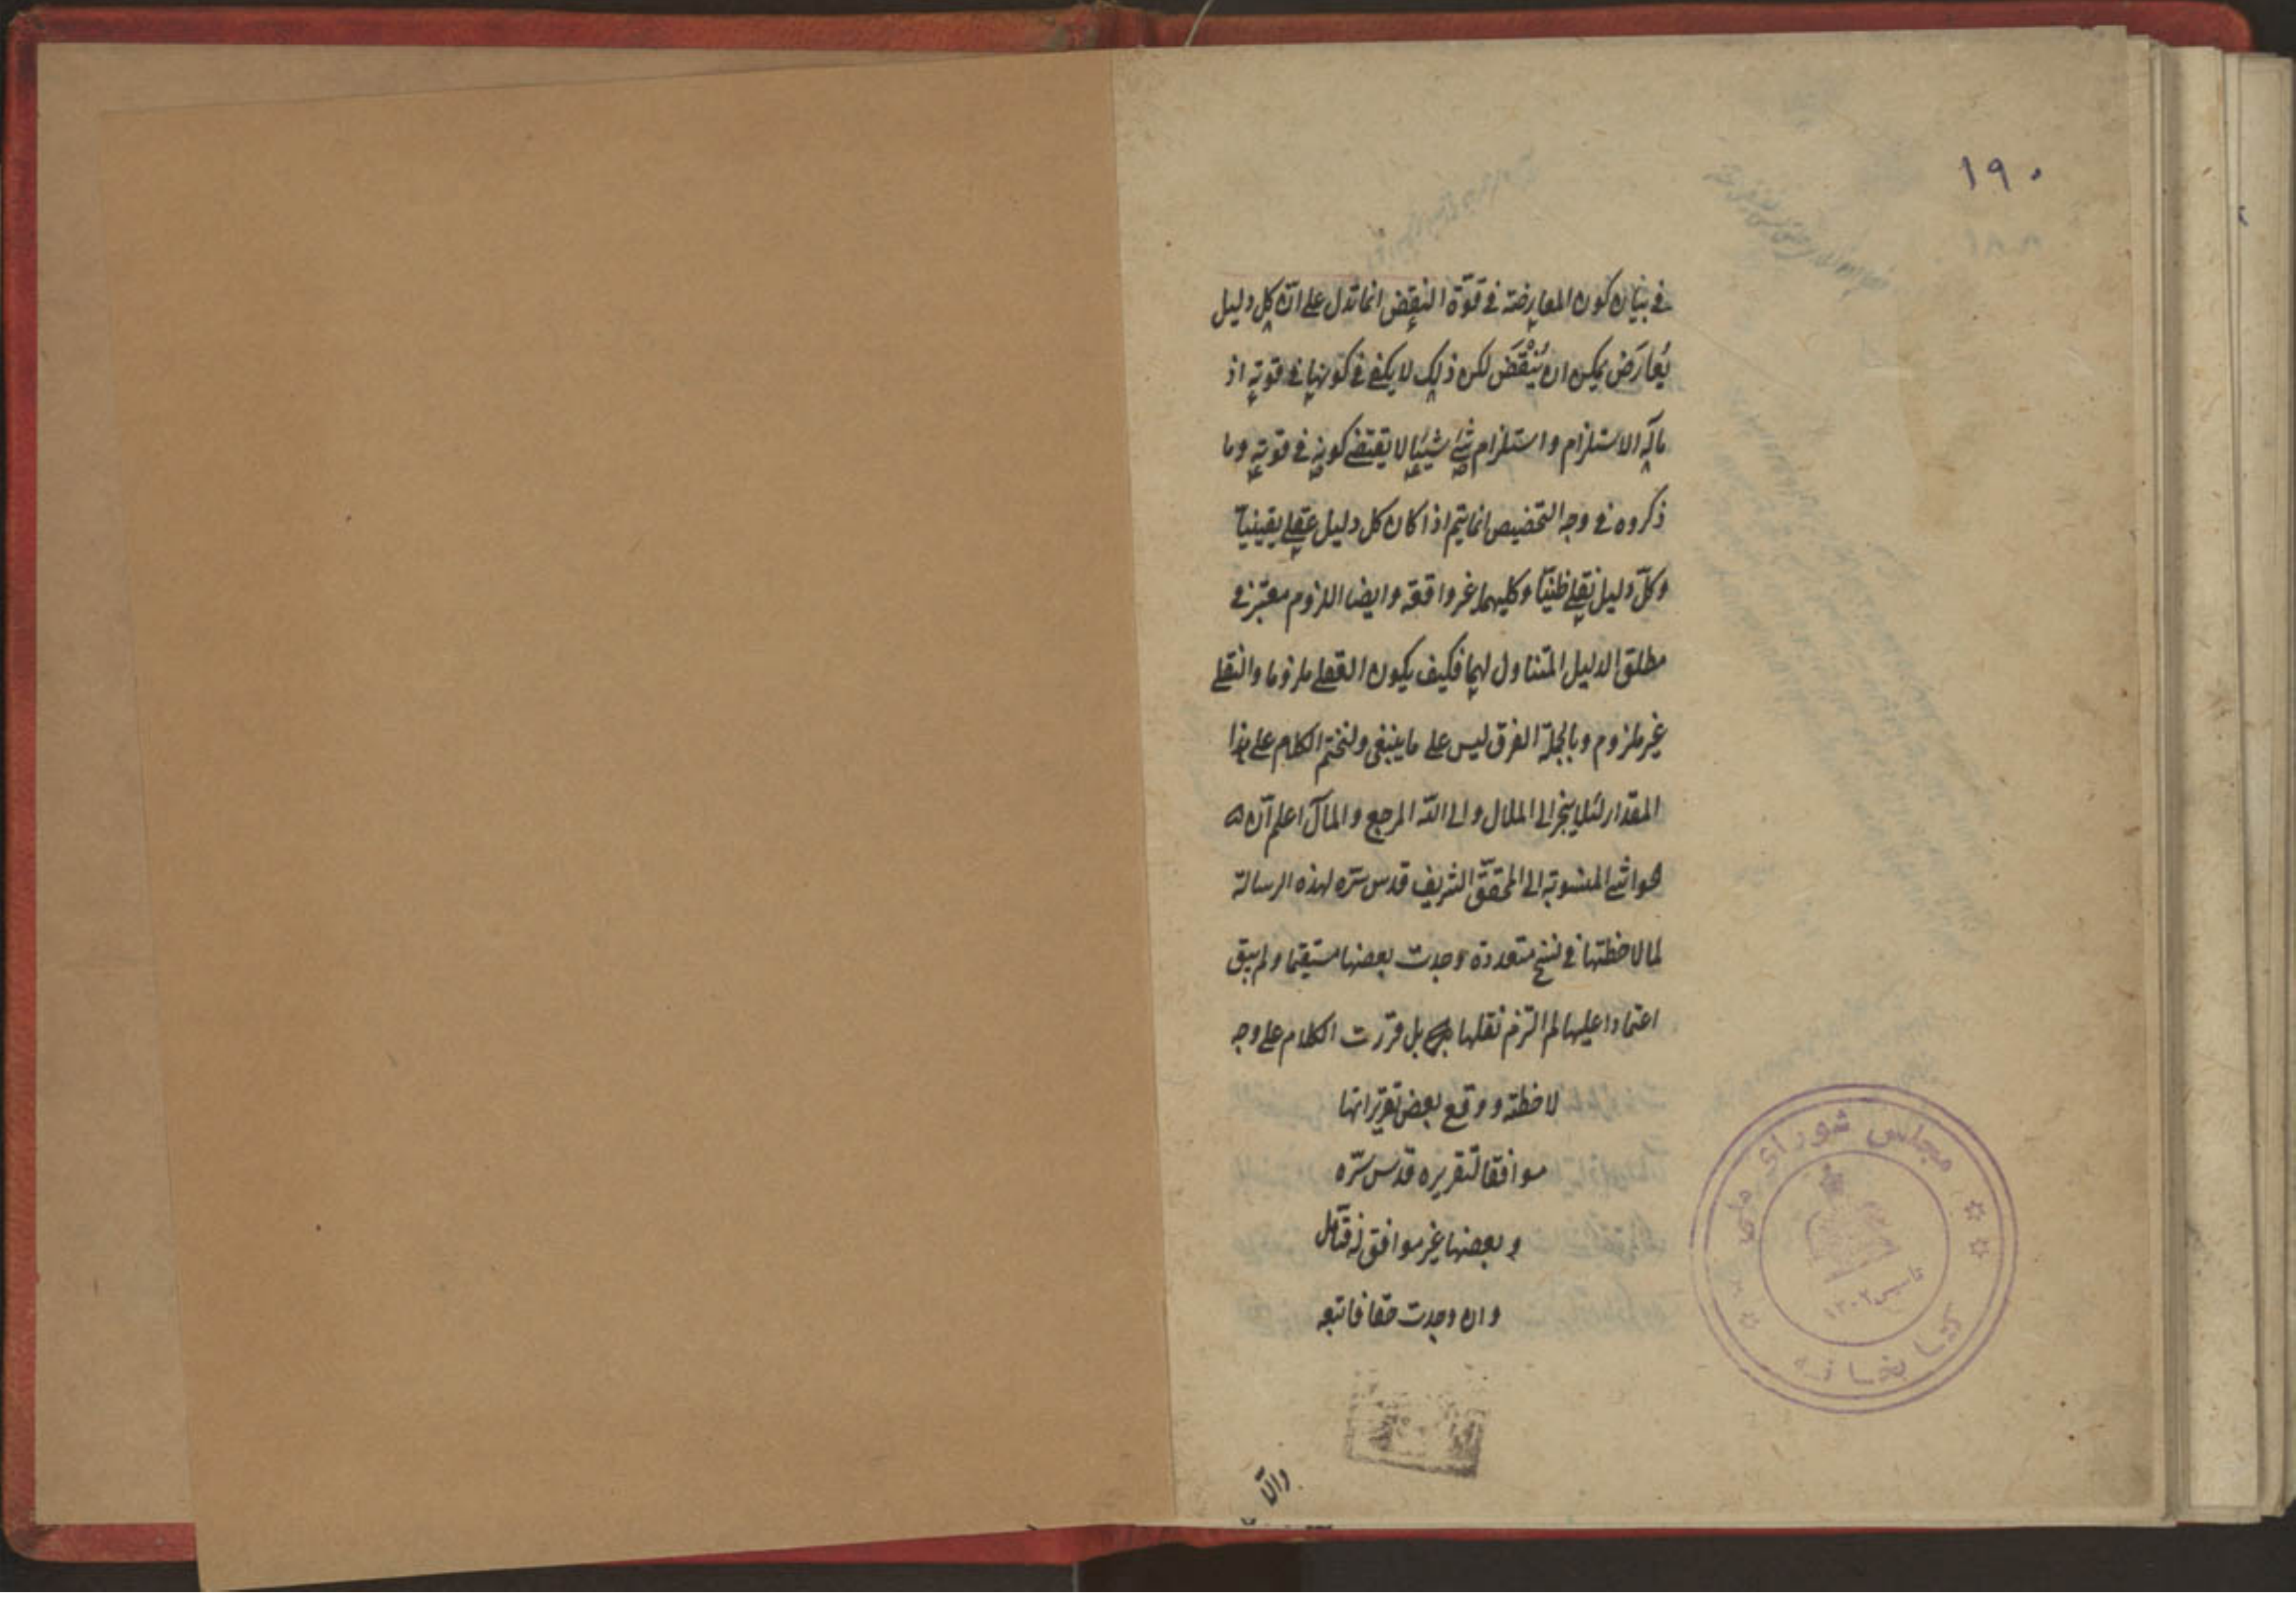 ١٩٠
في بيان كون المعارضة في قوة النقض انما تدل على انّ كل دليل
يُعارَض يمكن ان يُنْقَضَ لكن ذلك لا يكفي في كونها في قوته اذ
مآله الاستلزام واستلزام شئ شيئا لا يقتضي كونه في قوته وما
ذكروه في وجه التخصيص انما يتم اذا كان كل دليل عقلي يقينياً
وكلّ دليل نقلي ظنيّا وكليهما غير واقعة وايضا اللزوم معتبر في
مطلق الدليل المتناول لهما فكيف يكون العقلي ملزوما والنقلي
غير ملزوم وبالجملة الفرق ليس على ما ينبغي ولنختم الكلام على هذا
المقدار لئلا ينجر الى الملال والى الله المرجع والمآل اعلم انّ
حواشي المنسوبة الى المحقّق الشريف قدس سرّه لهذه الرسالة
لما لاحظتها في نسخ متعددة وجدت بعضها سقيما ولم يبق
اعتمادا عليها لم التزم نقلها بل قررت الكلام على وجه
لاحظته ووقع بعض تقريراتها
موافقا لتقريره قدس سرّه
وبعضها غير موافق له فتأمل
وان وجدت حقا فاتبعه
والّا
مجلس شورای ملی
کتابخانه
تاسیس ١٣٠٢